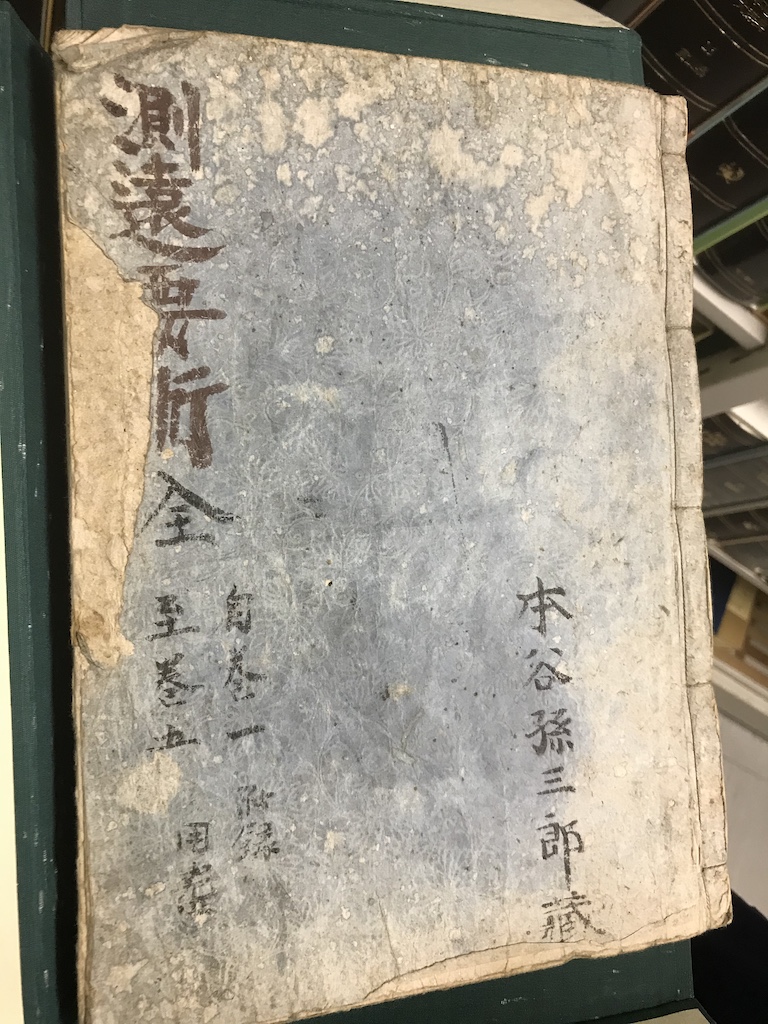 本谷孫三郎藏
自巻一 附録
至巻五 用表
測遠要術 全